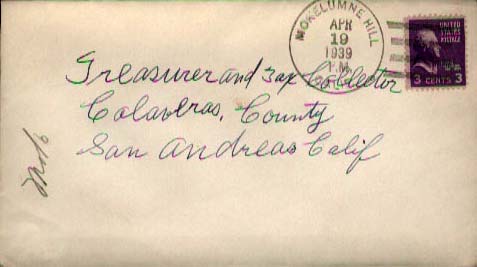 MOKELUMNE HILL
APR
19
1939
P.M.
UNITED STATES POSTAGE
3 CENTS 3
Treasurer and Tax Collector
Calaveras, County
San Andreas Calif